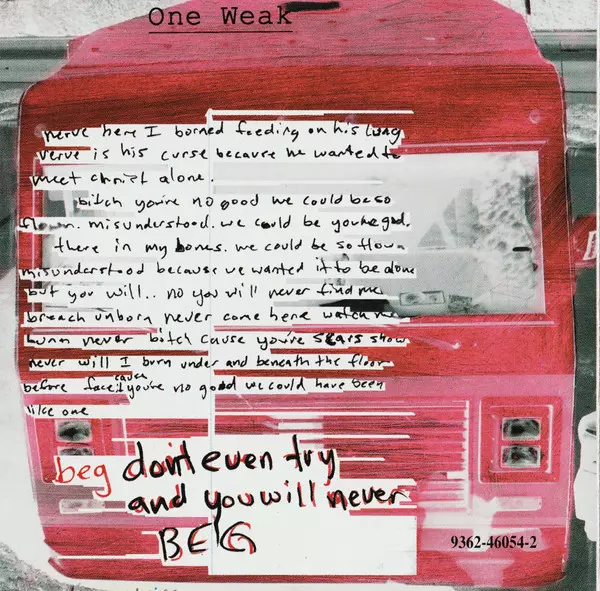 One Weak
nerve here I borned feeding on his lung
verve is his curse because he wanted to
meet christ alone.
bitch you're no good we could be so
flown. misunderstood. we could be you he god.
there in my bones. we could be so flown
misunderstood because we wanted it to be alone
but you will.. no you will never find me
breach unborn never come here watch me
burn never bitch cause you're scars show
never will I burn under and beneath the floor
before face cause you're no good we could have been
like one
beg don't even try
and you will never
BEG
9362-46054-2